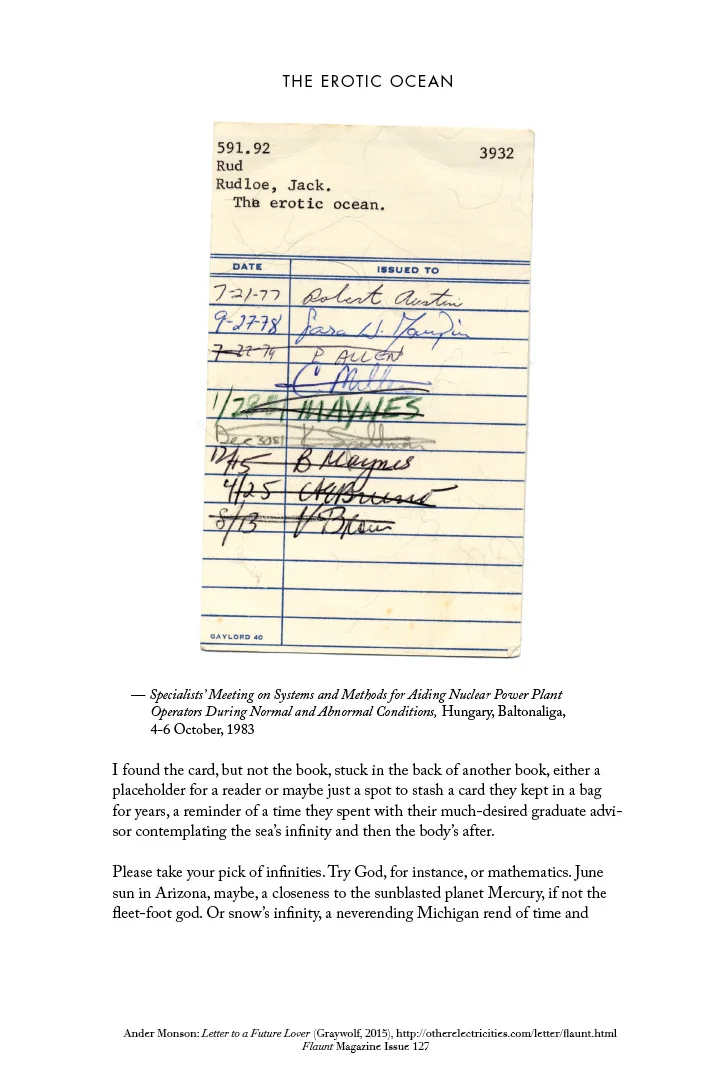 THE EROTIC OCEAN
591.92 3932
Rud
Rudloe, Jack.
The erotic ocean.
DATE ISSUED TO
7-21-77 Robert Austin
9-27-78 Sara W. Maupin
7-27-79 P ALLEN
C. Miller
MAYNES
Dec 30 81 K Spellman
12/15 B Maynes
4/25
8/13 V Brown
GAYLORD 40
— Specialists’ Meeting on Systems and Methods for Aiding Nuclear Power Plant
Operators During Normal and Abnormal Conditions, Hungary, Baltonaliga,
4-6 October, 1983
I found the card, but not the book, stuck in the back of another book, either a
placeholder for a reader or maybe just a spot to stash a card they kept in a bag
for years, a reminder of a time they spent with their much-desired graduate advi-
sor contemplating the sea’s infinity and then the body’s after.
Please take your pick of infinities. Try God, for instance, or mathematics. June
sun in Arizona, maybe, a closeness to the sunblasted planet Mercury, if not the
fleet-foot god. Or snow’s infinity, a neverending Michigan rend of time and
Ander Monson: Letter to a Future Lover (Graywolf, 2015), http://otherelectricities.com/letter/flaunt.html
Flaunt Magazine Issue 127